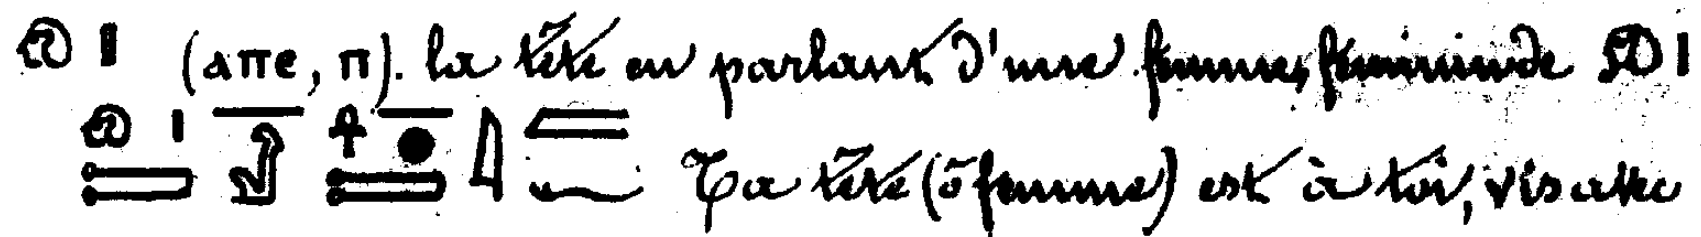 (ⲁⲡⲉ, ⲡ). la tête en parlant d'une femme, féminin de
Ta tête (ô femme) est à toi, vis avec